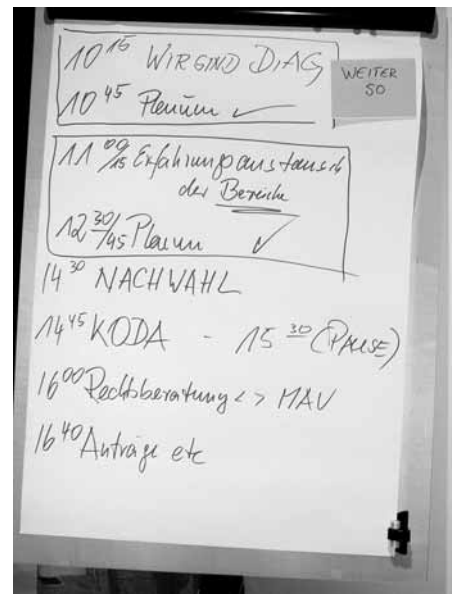 10 15 WIR SIND DIAG
WEITER
SO
10 45 Plenum ✓
11 00/15 Erfahrungsaustausch
der Bereiche
12 30/45 Plenum ✓
14 30 NACHWAHL
14 45 KODA - 15 30 (PAUSE)
16 00 Rechtsberatung <> MAV
16 40 Anträge etc